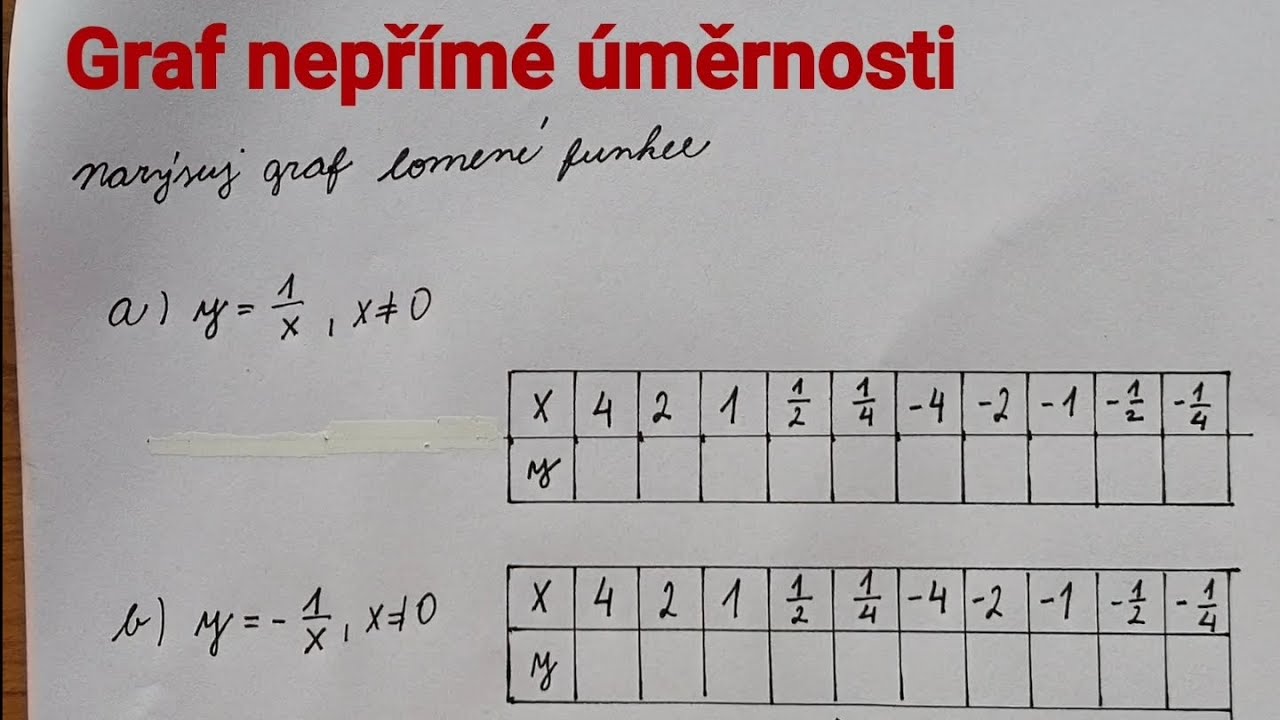 Graf nepřímé úměrnosti
narýsuj graf lomené funkce
a) y = 1/x , x≠0
x 4 2 1 1/2 1/4 -4 -2 -1 -1/2 -1/4
y
b) y = - 1/x , x≠0
x 4 2 1 1/2 1/4 -4 -2 -1 -1/2 -1/4
y